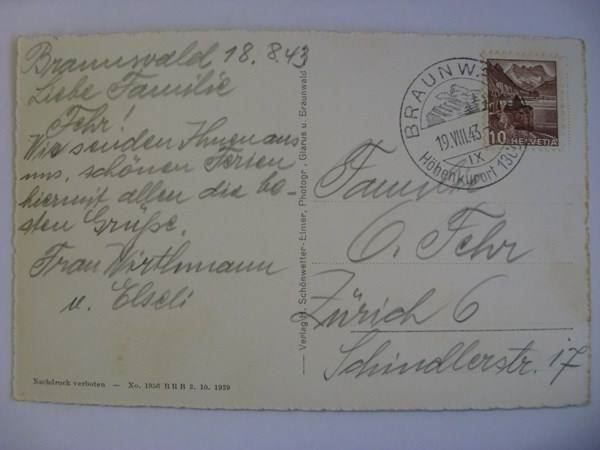 Braunwald 18.8.43
Liebe Familie
Fehr!
Wir senden Ihnen aus
uns. schönen Ferien
hiermit allen die be-
sten Grüße.
Frau Wirthmann
u. Elseli
Nachdruck verboten — No. 1956 BRB 3. 10. 1939
— Verlag H. Schönwetter-Elmer, Photogr. Glarus u. Braunwald
BRAUNW
19.VIII.43
IX
Höhenkurort
10 HELVETIA
Familie
O. Fehr
Zürich 6
Schindlerstr. 17